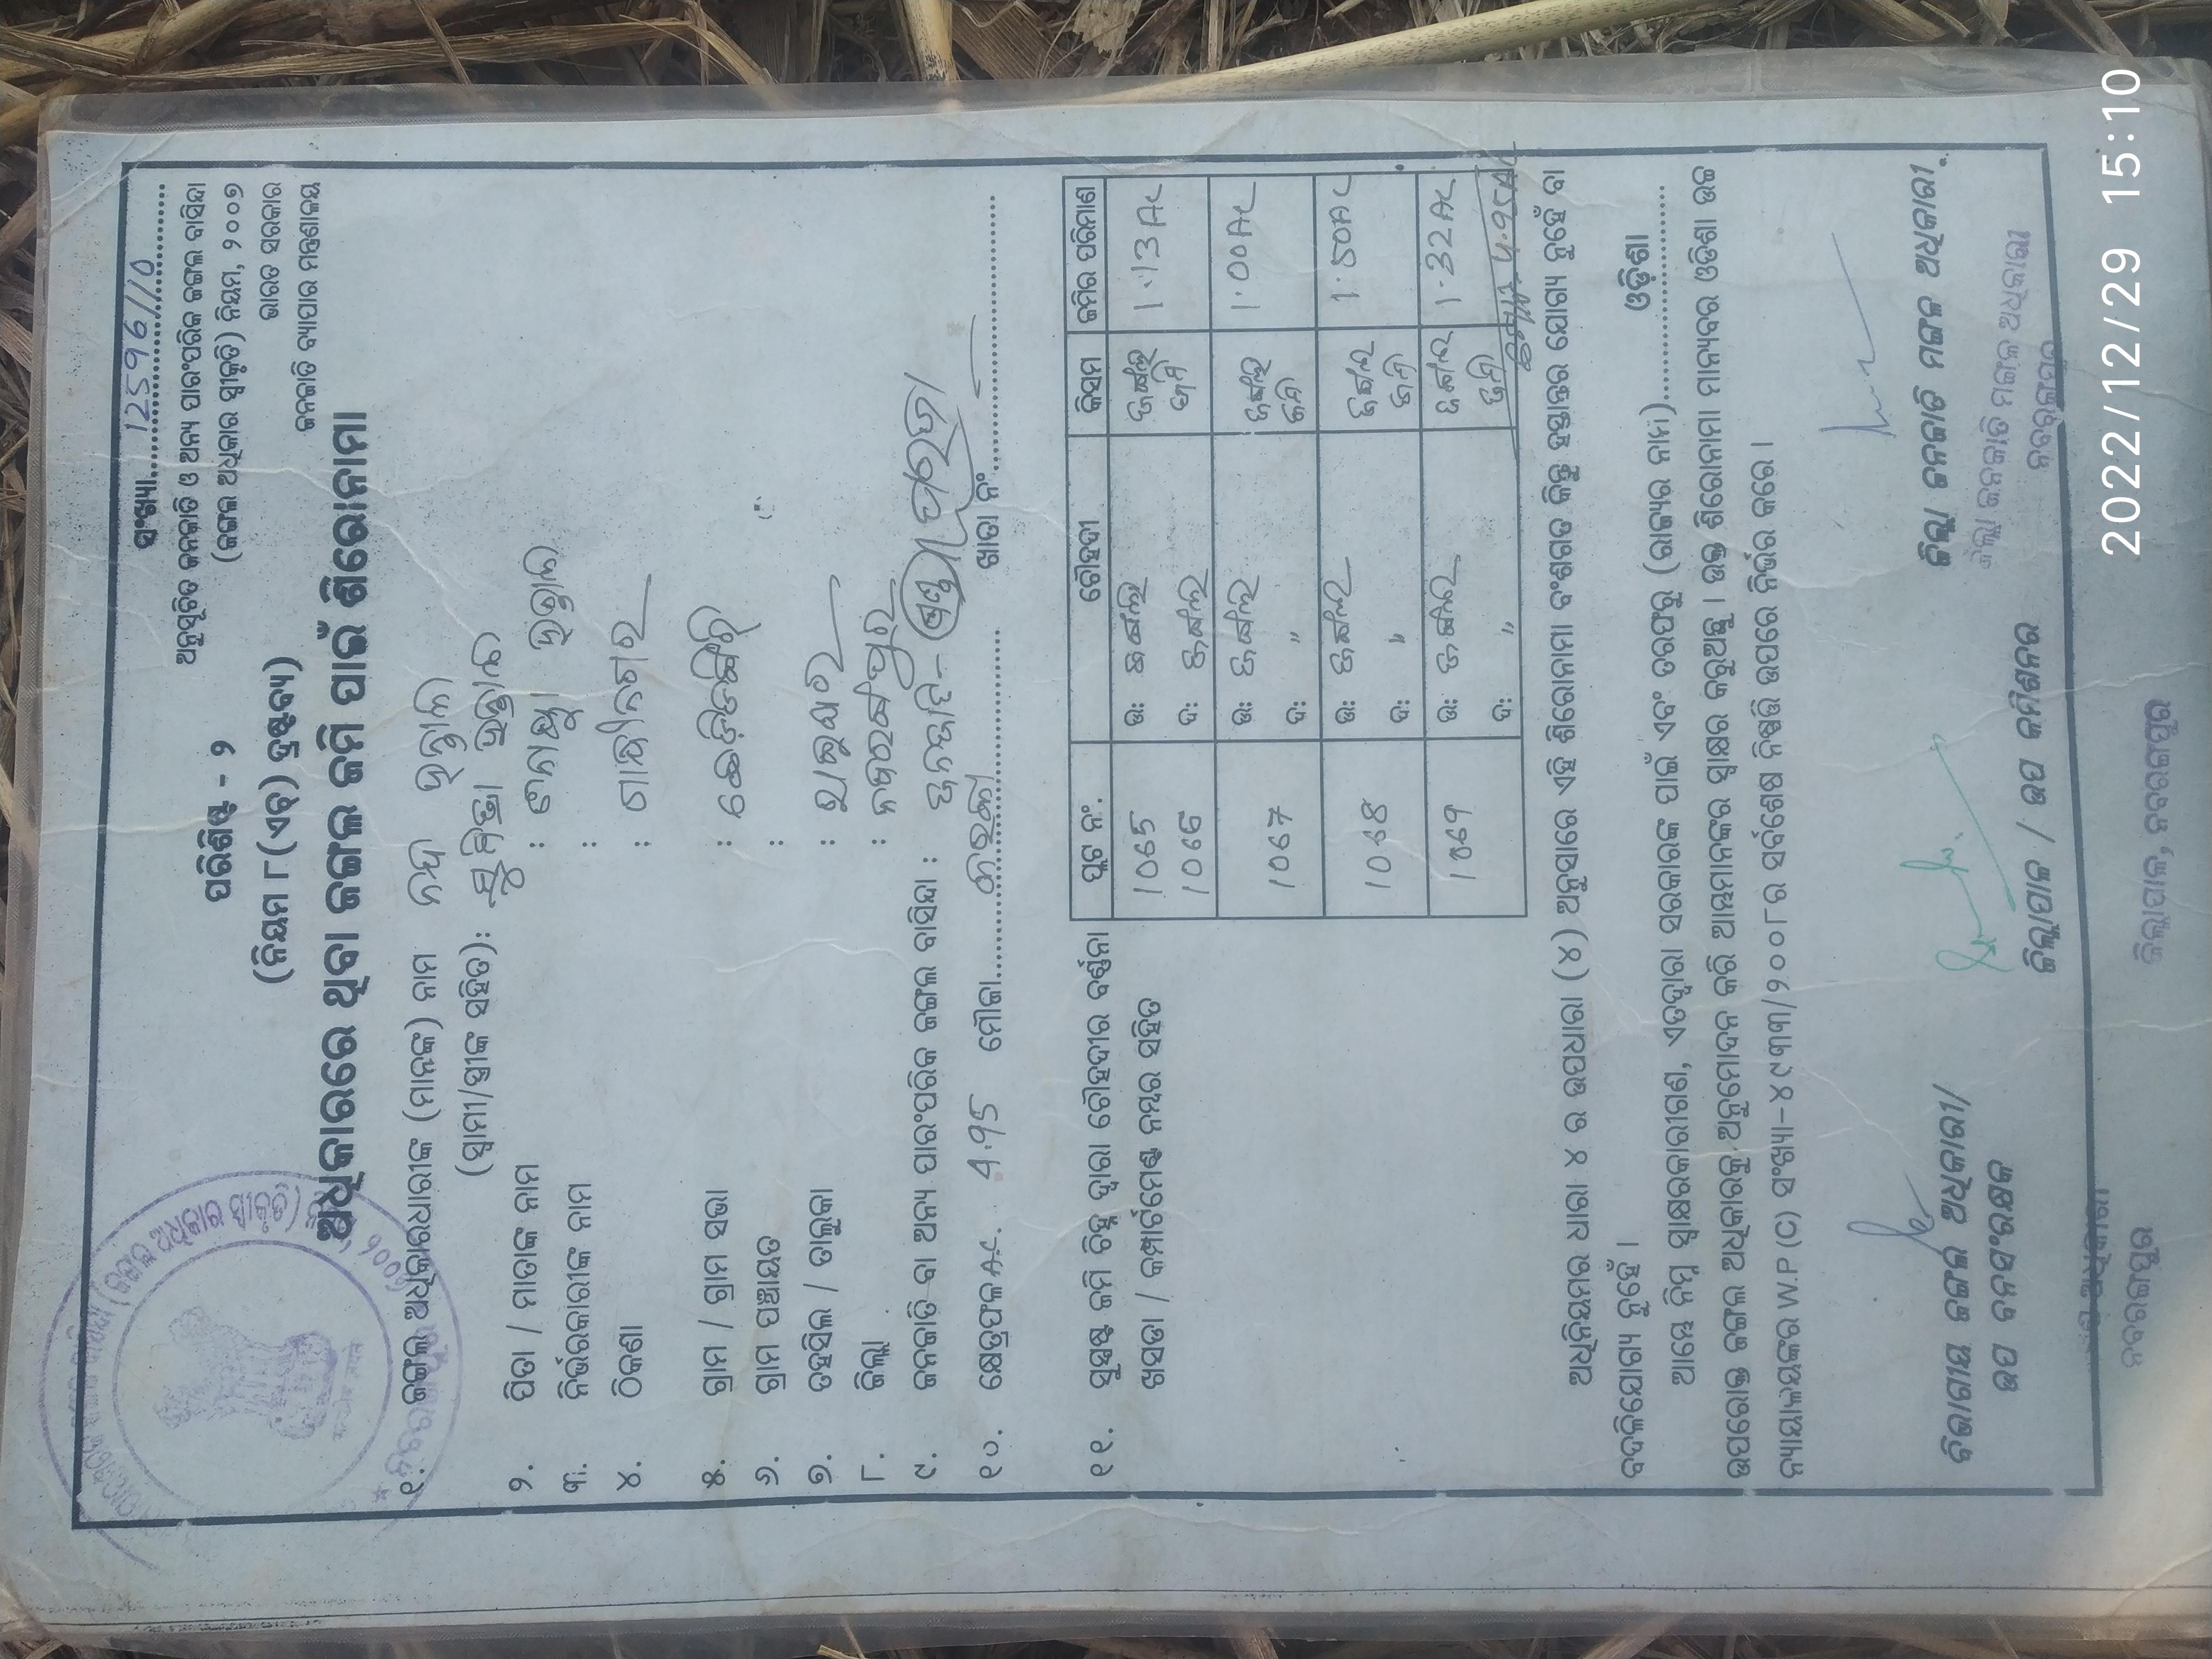 ସଂଖ୍ୟା......12596/10
ଅନୁସୂଚିତ ଜନଜାତି ଓ ଅନ୍ୟ ପାରଂପରିକ ଜଙ୍ଗଲ ବାସିନ୍ଦା
(ଜଙ୍ଗଲ ଅଧିକାର ସ୍ୱୀକୃତି) ନିୟମ, ୨୦୦୭
ଭାରତ ସରକାର
ଜନଜାତି ବ୍ୟାପାର ମନ୍ତ୍ରଣାଳୟ
ପରିଶିଷ୍ଟ - ୨
(ନିୟମ ୮(ଏଚ୍) ଦ୍ରଷ୍ଟବ୍ୟ)
ଅଧିକାରରେ ଥିବା ଜଙ୍ଗଲ ଜମି ପାଇଁ ଶିରୋନାମା
୧. ଜଙ୍ଗଲ ଅଧିକାରଧାରୀଙ୍କ (ମାନଙ୍କ) ନାମ
(ସ୍ୱାମୀ/ସ୍ତ୍ରୀଙ୍କ ସହିତ):
୨. ପିତା / ମାତାଙ୍କ ନାମ :
୩. ନିର୍ଭରକାରୀଙ୍କ ନାମ :
୪. ଠିକଣା : ଗାନ୍ଧୀନଗର
୫. ଗ୍ରାମ / ଗ୍ରାମ ସଭା :
୬. ଗ୍ରାମ ପଞ୍ଚାୟତ :
୭. ତହସିଲ / ତାଲୁକା : ରାଇଘର
୮. ଜିଲ୍ଲା : ନବରଙ୍ଗପୁର
୯. ଜନଜାତି ବା ଅନ୍ୟ ପାରଂପରିକ ଜଙ୍ଗଲ ବାସିନ୍ଦା : ଜନଜାତି-
୧୦. କ୍ଷେତ୍ରଫଳ Ac. 4.95 ମୌଜା...... ଖାତା ନଂ......
୧୧. ସୁସ୍ପଷ୍ଟ ଜମି ଚିହ୍ନ ଦ୍ୱାରା ଚୌହଦୀର ବର୍ଣ୍ଣନା
ଖସଡା / କମ୍ପାର୍ଟମେଣ୍ଟ ନମ୍ବର ସହିତ
ପ୍ଲଟ ନଂ. ଚୌହଦୀ କିସମ ଜମିର ପରିମାଣ
1065 ଉଃ ଜଙ୍ଗଲ ଜଙ୍ଗଲ 1.13 Ac
1066 ଦଃ ଜଙ୍ଗଲ ଜମି
1067 ଉଃ ଜଙ୍ଗଲ ଜଙ୍ଗଲ 1.00 Ac
ଦଃ " ଜମି
1068 ଉଃ ଜଙ୍ଗଲ ଜଙ୍ଗଲ 1.50 Ac
ଦଃ " ଜମି
1069 ଉଃ ଜଙ୍ଗଲ ଜଙ୍ଗଲ 1.32 Ac
ଦଃ " ଜମି
4.95 Ac
ଅଧିନିୟମର ଧାରା ୪ ର ଉପଧାରା (୪) ଅନୁସାରେ ଏହି ଶିରୋନାମା ବଂଶଗତ କିନ୍ତୁ ହସ୍ତାନ୍ତର ଯୋଗ୍ୟ ନୁହେଁ ବା
ବଦଳିଯୋଗ୍ୟ ନୁହେଁ ।
ଆମ୍ଭେ ନିମ୍ନ ସ୍ୱାକ୍ଷରକାରୀଗଣ, ଏତଦ୍ୱାରା ସରକାରଙ୍କ ପାଇଁ ଏବଂ ତରଫରୁ (ରାଜ୍ୟର ନାମ)......ଓଡ଼ିଶା......
ଉପରୋକ୍ତ ଜଙ୍ଗଲ ଅଧିକାରକୁ ଅନୁମୋଦନ କରି ଆମ୍ଭମାନଙ୍କର ସ୍ୱାକ୍ଷର କରୁଅଛୁ । ଉକ୍ତ ଶିରୋନାମା ମାନ୍ୟବର ଓଡିଶା ଉଚ୍ଚ
ନ୍ୟାୟାଳୟଙ୍କର W.P (C) ସଂଖ୍ୟା-୪୯୩୩/୨୦୦୮ର ସର୍ବଶେଷ ନିଷ୍ପତ୍ତି ଉପରେ ନିର୍ଭର କରେ ।
ବିଭାଗୀୟ ଜଙ୍ଗଲ ଅଧିକାରୀ/
ଉପ ବନସଂରକ୍ଷକ
ନବରଙ୍ଗପୁର
ଜିଲ୍ଲାପାଳ / ଉପ କମିଶନର
ଜିଲ୍ଲାପାଳ, ନବରଙ୍ଗପୁର
ଜିଲ୍ଲା ଜନଜାତି ମଙ୍ଗଳ ଅଧିକାରୀ
ଜିଲ୍ଲା ଜନଜାତି ମଙ୍ଗଳ ଅଧିକାରୀ
ନବରଙ୍ଗପୁର
2022/12/29 15:10